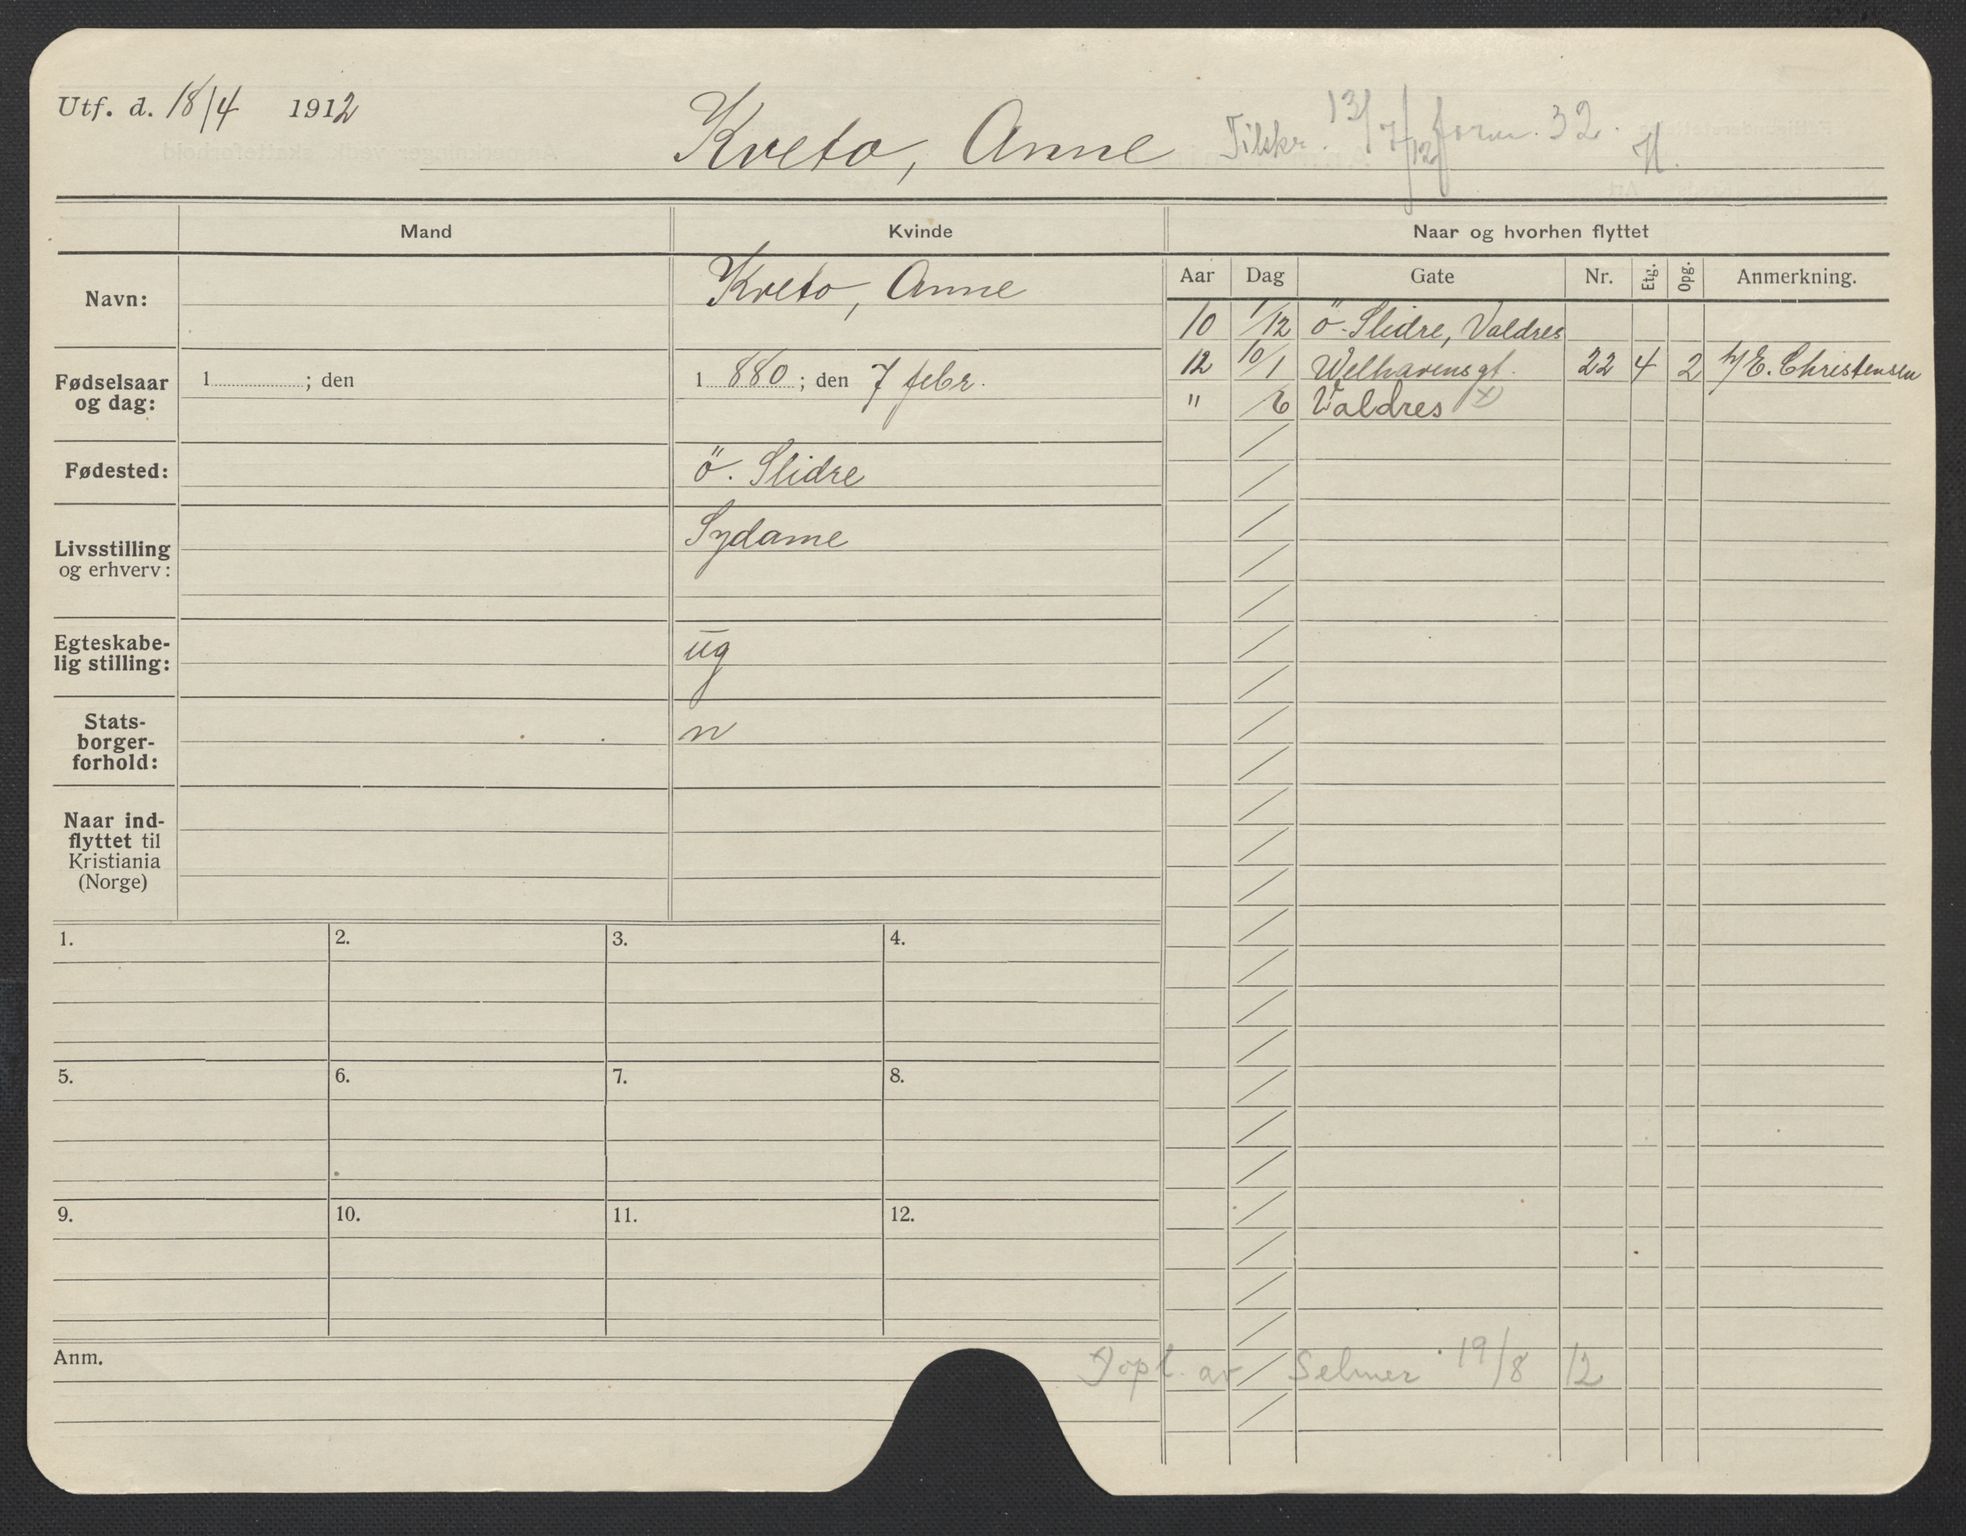 Utf. d. 18/4 1912
Kveto, Anne Tilskr. 13/7 12 form. 32.
Mand Kvinde Naar og hvorhen flyttet
Aar Dag Gate Nr. Etg. Opg. Anmerkning.
Navn: Kveto, Anne
10 1/12 Ö. Slidre, Valdres
12 10/1 Welhavensgt. 22 4 2 h/E. Christensen
" /6 Valdres x)
Fødselsaar
og dag: 1 ; den 1 880 ; den 7 febr.
Fødested: Ö. Slidre
Livsstilling
og erhverv: Sydame
Egteskabe-
lig stilling: ug
Stats-
borger-
forhold: n
Naar ind-
flyttet til
Kristiania
(Norge)
1. 2. 3. 4.
5. 6. 7. 8.
9. 10. 11. 12.
Anm.
x) opl. av Selmer 19/8 12